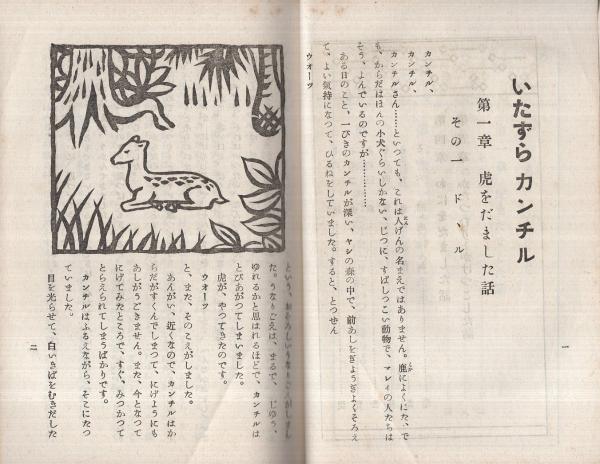 いたずら カンチル
第一章 虎をだました話
その一 ドル
カンチル、
カンチル、
カンチルさん……といつても、これは人げんの名まえではありません。鹿によくにた、で
も、からだはほんの小犬ぐらいしかない、じつに、すばしつこい動物で、マレイの人たちは
そう、よんでいるのですが…………
ある日のこと、一ぴきのカンチルが深い、ヤシの森の中で、前あしをぎようぎよくそろえ
て、よい氣持になつて、ひるねをしていました。すると、とつぜん
ウオーツ
一
という、おそろしいうなりごえがしまし
た。うなりごえは、まるで、じゆう、
ゆれるかと思はれるほどで、カンチルは
とびあがつてしまいました。
虎が、やつてきたのです。
ウオーツ
と、また、そのこえがしました。
あんがい、近くなので、カンチルはか
らだがすくんでしまつて、にげようにも
あしがうごきません。また、今となつて
にげてみたところで、すぐ、みつかつて
とらえられてしまうばかりです。
カンチルはふるえながら、そこにたつ
ていました。
目を光らせて、白いきばをむきだした
二